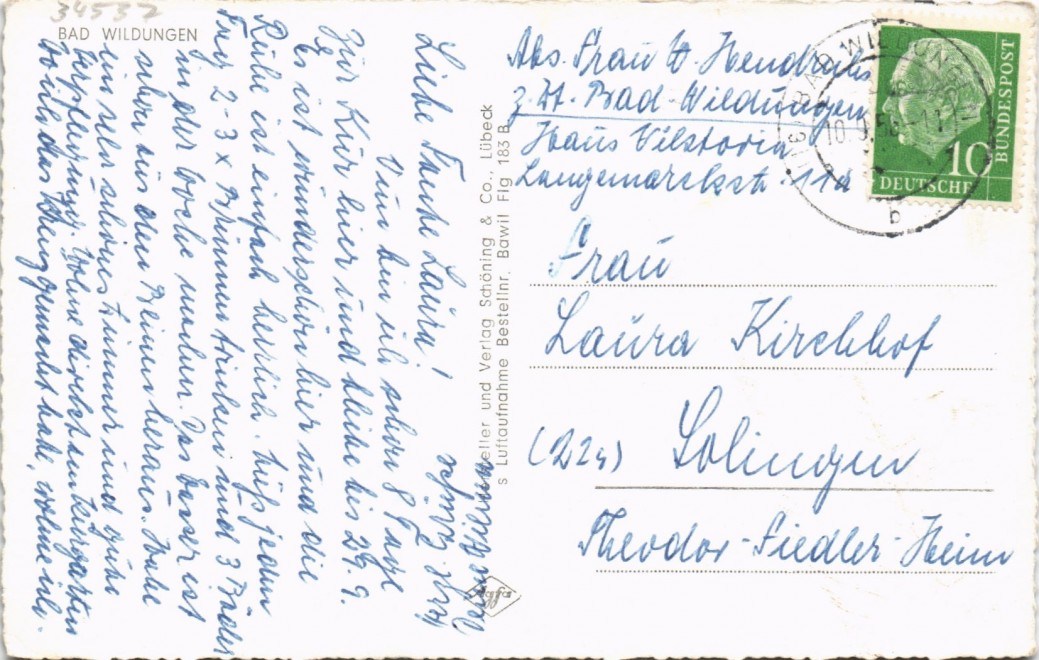 34537
BAD WILDUNGEN
Liebe Tante Laura!
Nun bin ich schon 8 Tage
zur Kur hier und bleibe bis 29. 9.
Es ist wunderschön hier und die
Ruhe ist einfach herrlich. Muß jeden
Tag 2-3 x Brunnen trinken und 3 Bäder
in der Woche nehmen. Das Wasser ist
schon aus den Beinen heraus. Habe
ein sehr schönes Zimmer und gute
Verpflegung. Wohne direkt am Kurgarten
wo ich das Kreuz gemacht habe, wohne ich.
Herzl. Grüße
Hersteller und Verlag Schöning & Co., Lübeck
s Luftaufnahme Bestellnr. Bawil Flg 183 B
Agfa
Abs. Frau H. Hendrichs
z. Zt. Bad-Wildungen
Haus Viktoria
Langemarckstr. 11a
BAD WILDUNGEN
b
DEUTSCHE
BUNDESPOST
10
Frau
Laura Kirchhof
(22a) Solingen
Theodor-Fiedler-Heim